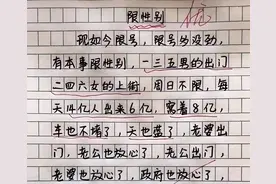 限性别
现如今限号，限号多没劲，
有本事限性别，一三五男的出门
二四六女的上街，周日不限，每
天14亿人出来6亿，窝着8亿，
车也不堵了，天也蓝了，老婆出
门，老公也放心了，老公出门，
老婆也放心了，政府也放心了，